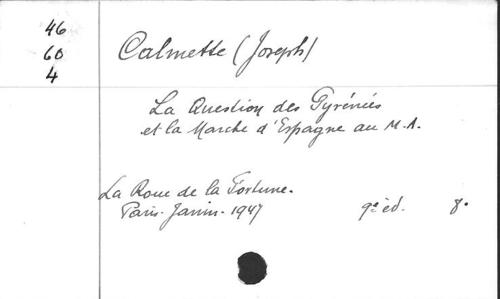 46
60
4
Calmette (Joseph)
La Question des Pyrénées
et la Marche d'Espagne au M.A.
La Roue de la Fortune.
Paris. Janin. 1947 9e éd. 8°